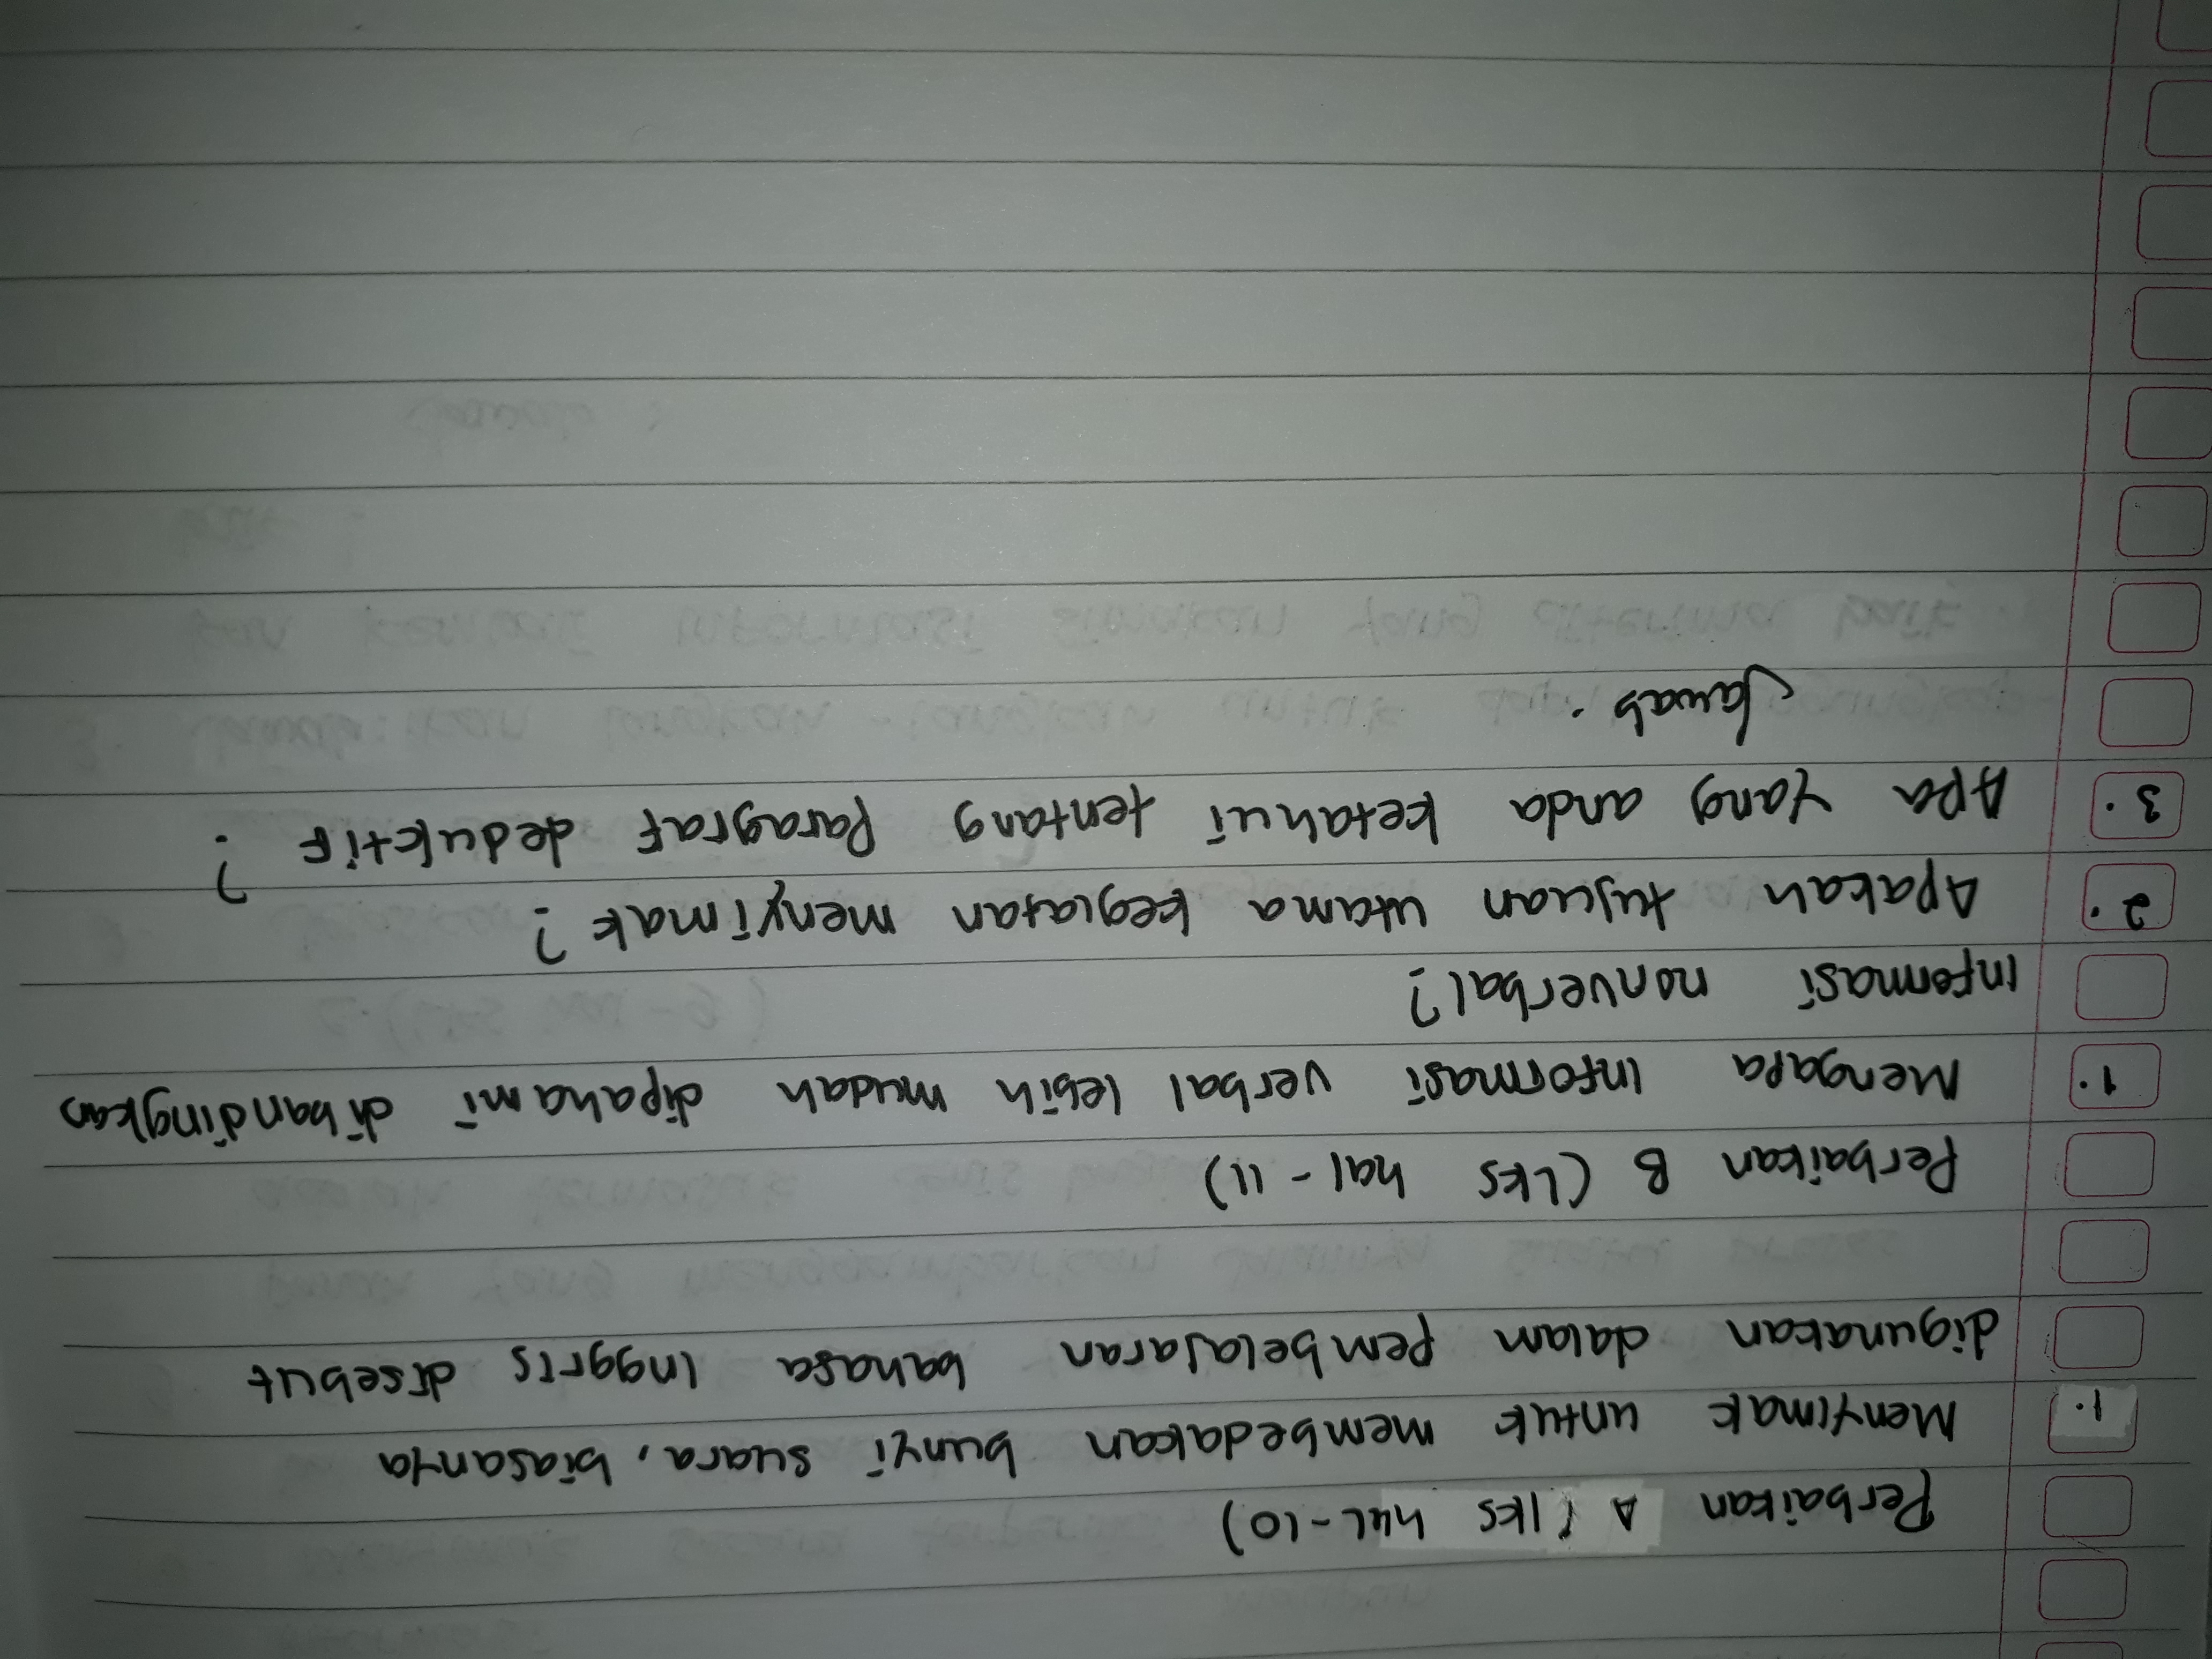 Perbaikan A (lks hal-10)
1. Menyimak untuk membedakan bunyi suara, biasanya
digunakan dalam pembelajaran bahasa Inggris disebut
Perbaikan B (Lks hal-11)
1. Mengapa informasi verbal lebih mudah dipahami dibandingkan
informasi nonverbal?
2. Apakah tujuan utama kegiatan menyimak?
3. Apa yang anda ketahui tentang Paragraf deduktif?
Jawab.